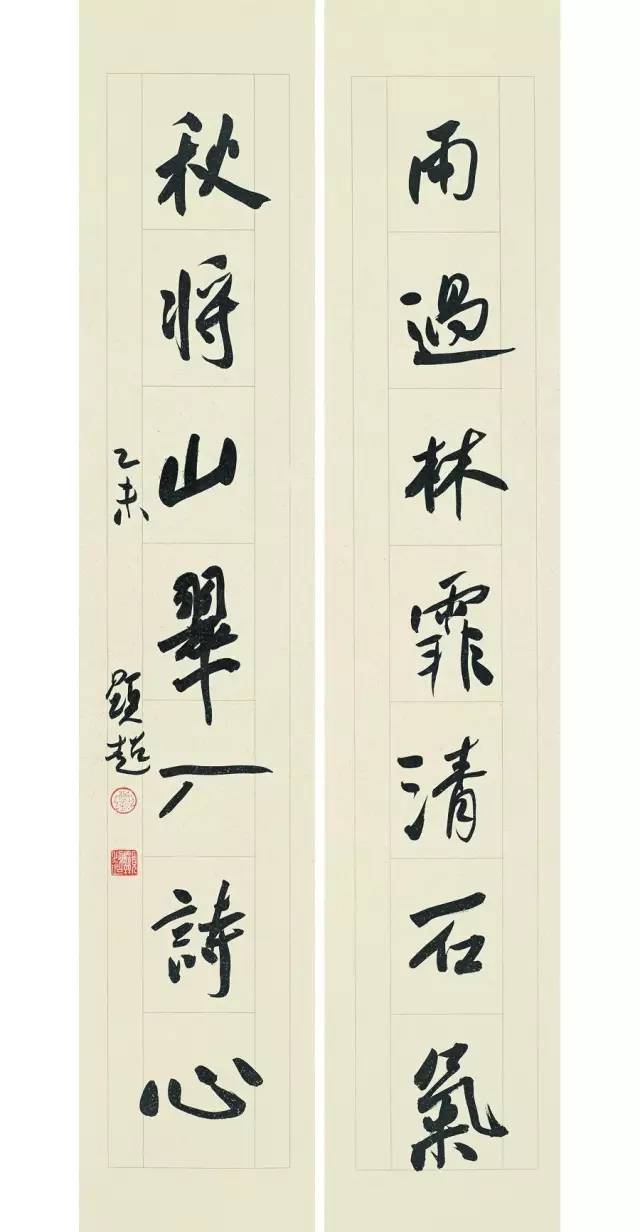 雨過林霏清石氣
秋將山翠入詩心
乙未
超